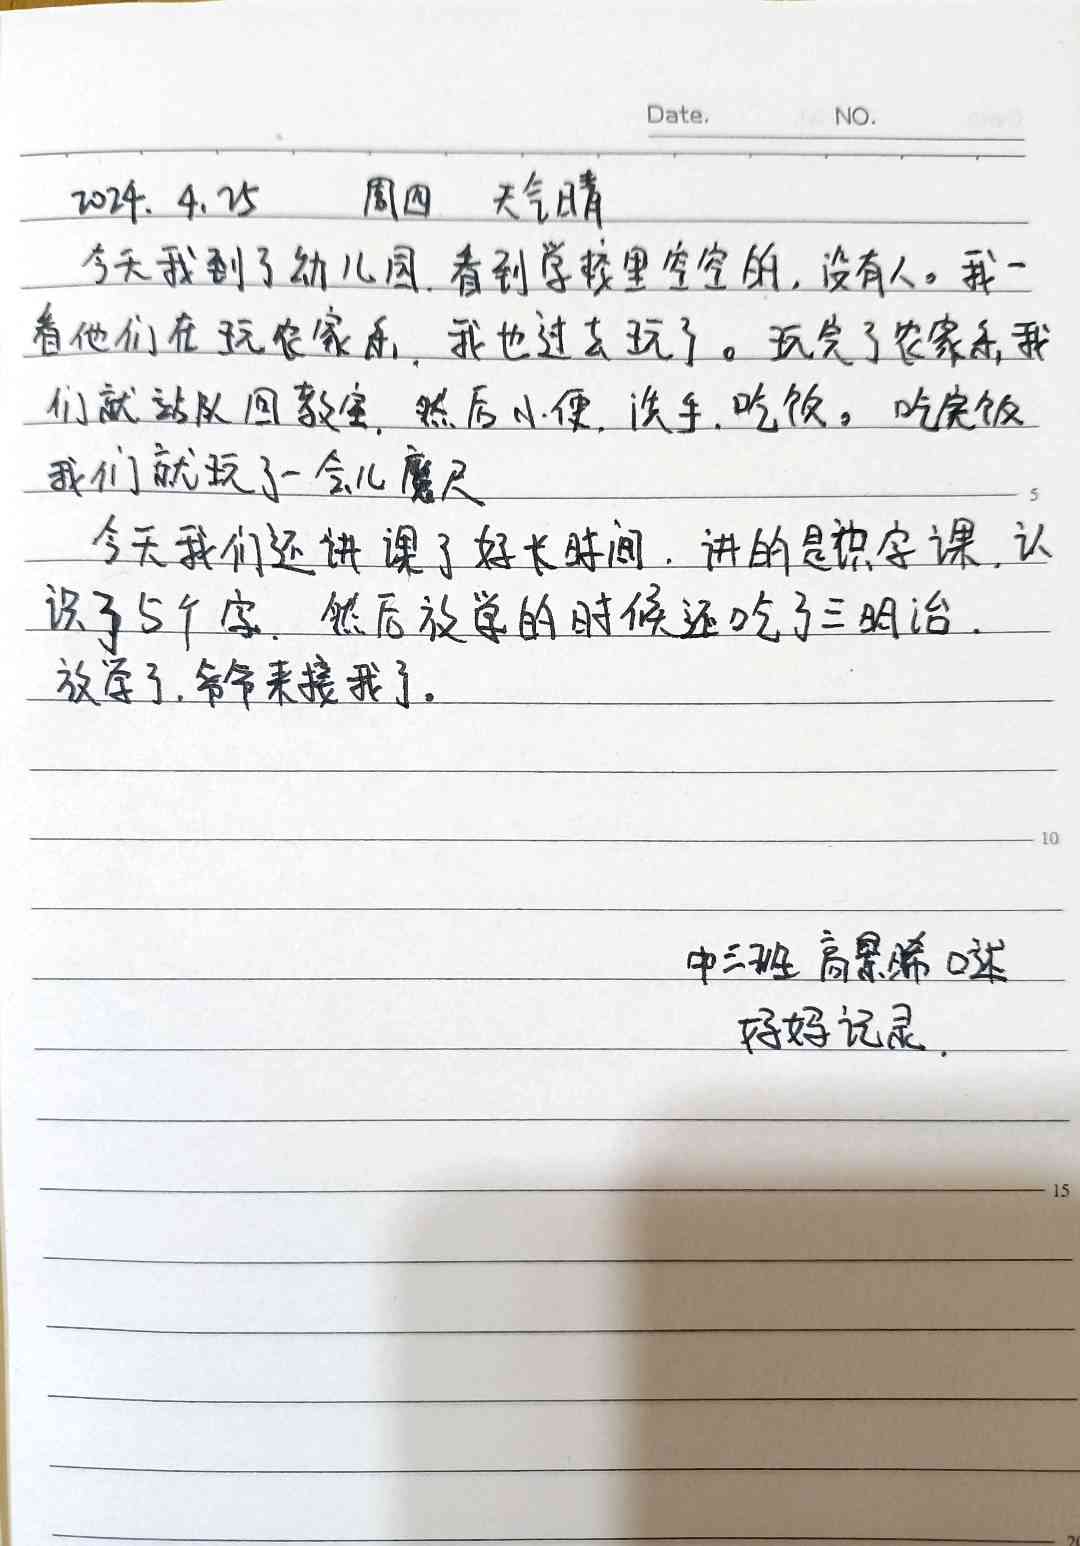 Date. NO.
2024.4.25 周四 天气晴
今天我到了幼儿园,看到学校里空空的,没有人。我一
看他们在玩农家乐,我也过去玩了。玩完了农家乐,我
们就站队回教室,然后小便,洗手,吃饭。吃完饭
我们就玩了一会儿魔尺
5
今天我们还讲课了好长时间,讲的是识字课,认
识了5个字,然后放学的时候还吃了三明治.
放学了,爷爷来接我了。
10
中三班 高景晞 口述
好好记录.
15
20